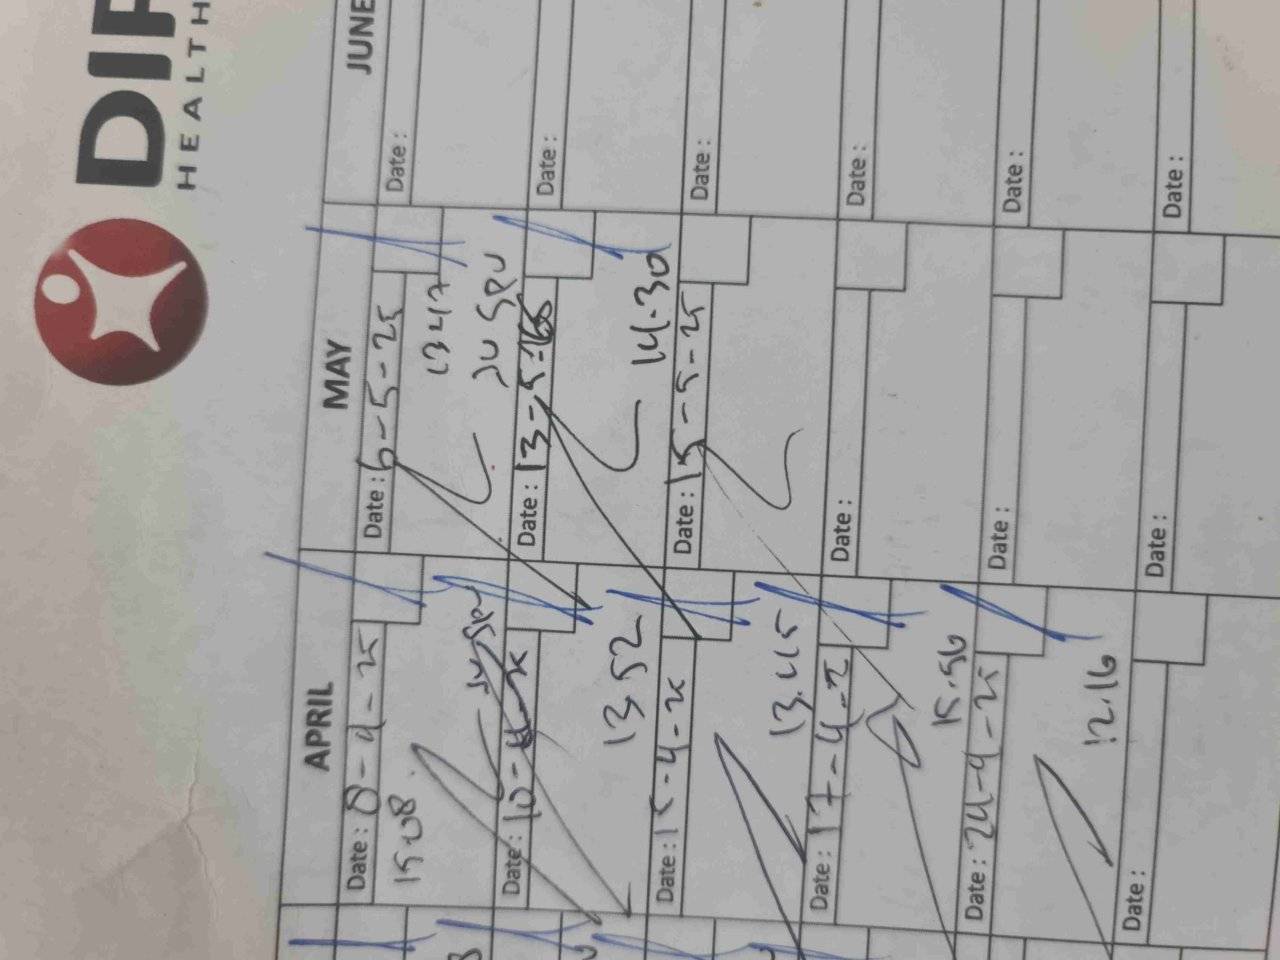 DIR
HEALTH
APRIL
MAY
JUNE
Date : 8-4-25
15.08
Date : 6-5-25
1347
Date :
Date : 10-4-25
1352
Date : 13-5-
14.30
Date :
Date : 15-4-25
13.45
Date : 15-5-25
Date :
Date : 17-4-2
15.56
Date :
Date :
Date : 24-4-25
12.16
Date :
Date :
Date :
Date :
Date :